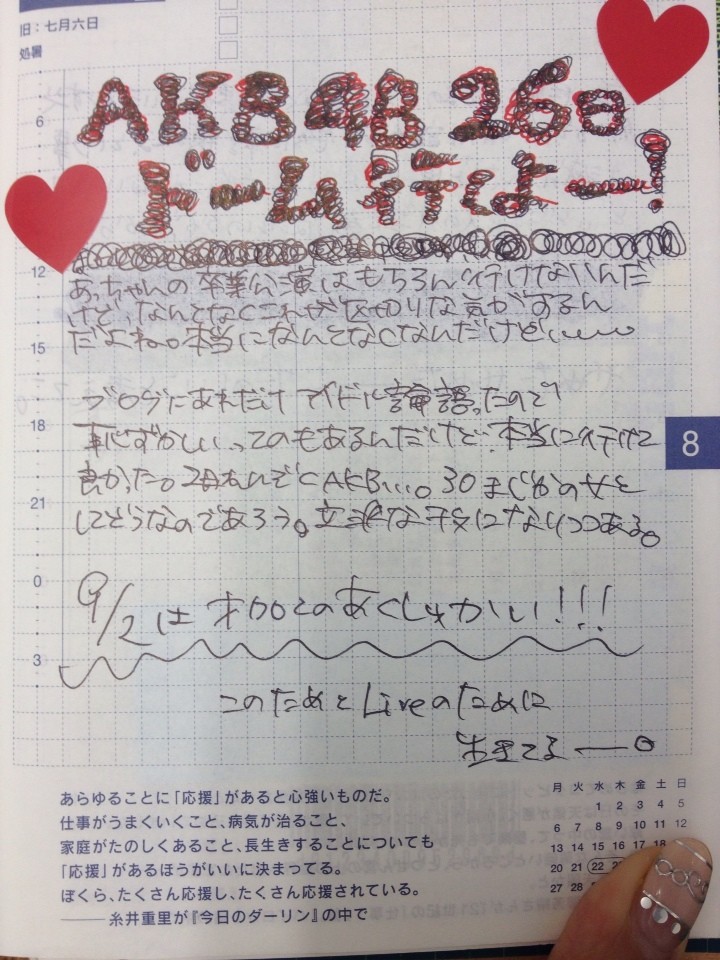 旧：七月六日
処暑
AKB48 26日
ドーム行けよー!
あっちゃんの卒業公演はもちろん行けないんだ
けど、なんとなくこれが区切りな気がするん
だよね。本当になんとなくなんだけど
ブログにあれだけアイドル論語ったので
恥ずかしいってのもあるんだけど、本当に行けて
良かった。2日れんぞくAKB…。30まぢかの女と
してどうなのであろう。立派なヲタになりつつある。
9/2は オロCのあくしゅかい!!!
このためとLiveのために
生きてるー。
6
12
15
18
21
0
3
8
あらゆることに「応援」があると心強いものだ。
仕事がうまくいくこと、病気が治ること、
家庭がたのしくあること、長生きすることについても
「応援」があるほうがいいに決まってる。
ぼくら、たくさん応援し、たくさん応援されている。
——糸井重里が『今日のダーリン』の中で
月 火 水 木 金 土 日
1 2 3 4 5
6 7 8 9 10 11 12
13 14 15 16 17 18
20 21 22
27 28